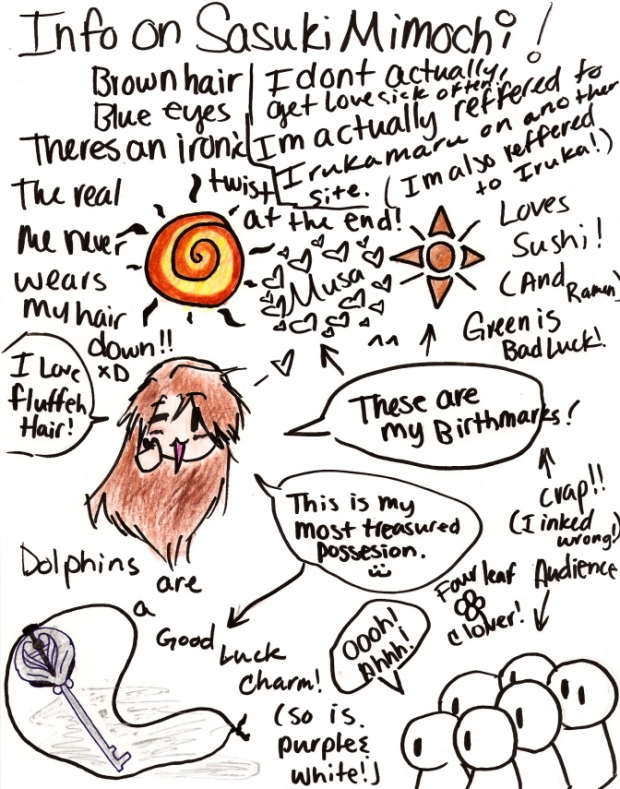 Info on Sasuki Mimochi!
Brown hair
Blue eyes
Theres an ironic
twist
at the end!
I dont actually
get lovesick often!
Im actually reffered to
Irukamaru on another
site. (Im also reffered
to Iruka!)
The real
me never
wears
my hair
down!!
xD
Musa
^^
Loves
Sushi!
(And Ramen)
Green is
Bad Luck!
I Love
fluffeh
Hair!
These are
my Birthmarks!
Crap!!
(I inked
wrong!)
This is my
most treasured
possesion.
Dolphins are
a
Good
Luck
charm!
(so is
purple &
white!)
Four leaf
clover!
Audience
Oooh!
Ahhh!